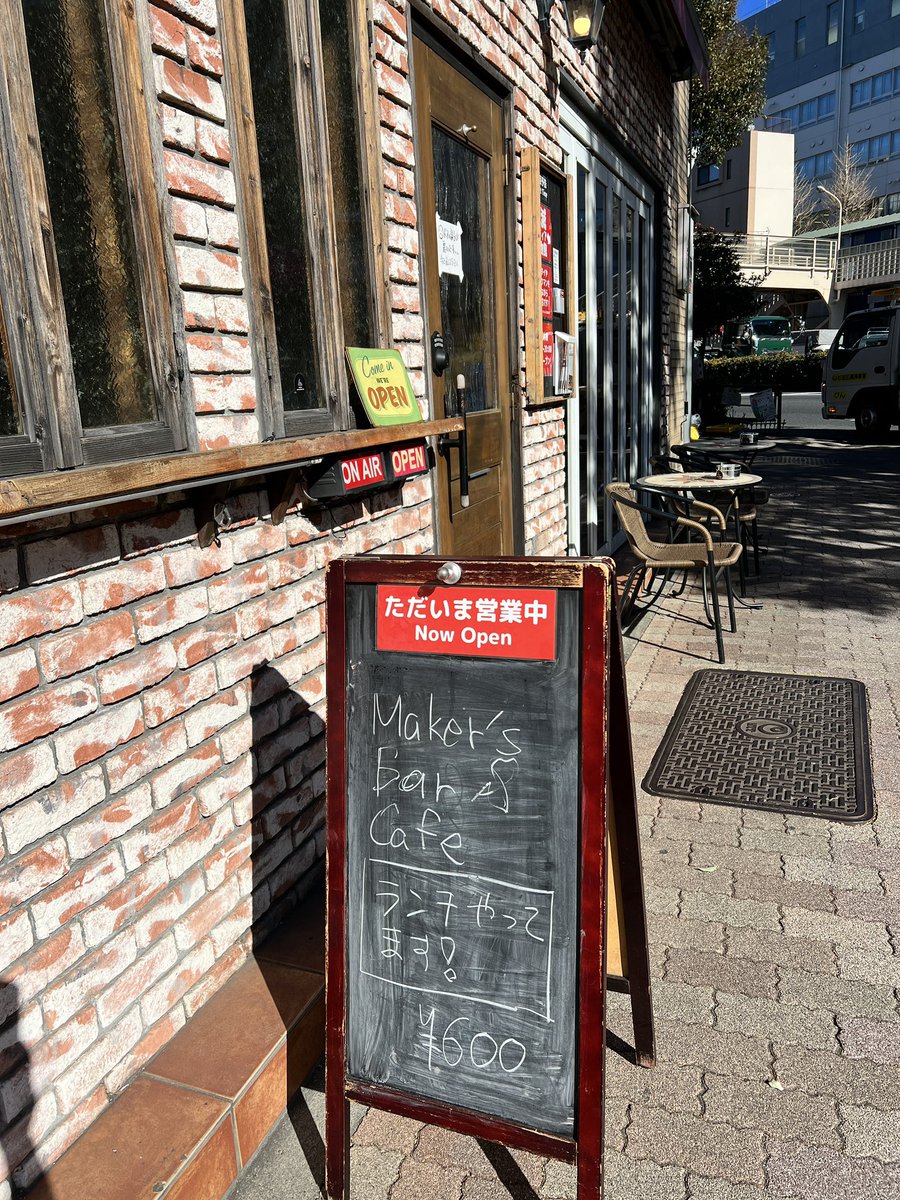 Come in
WE'RE
OPEN
ON AIR
OPEN
ただいま営業中
Now Open
Maker's
Bar &
Cafe
ランチやって
ます!
¥600